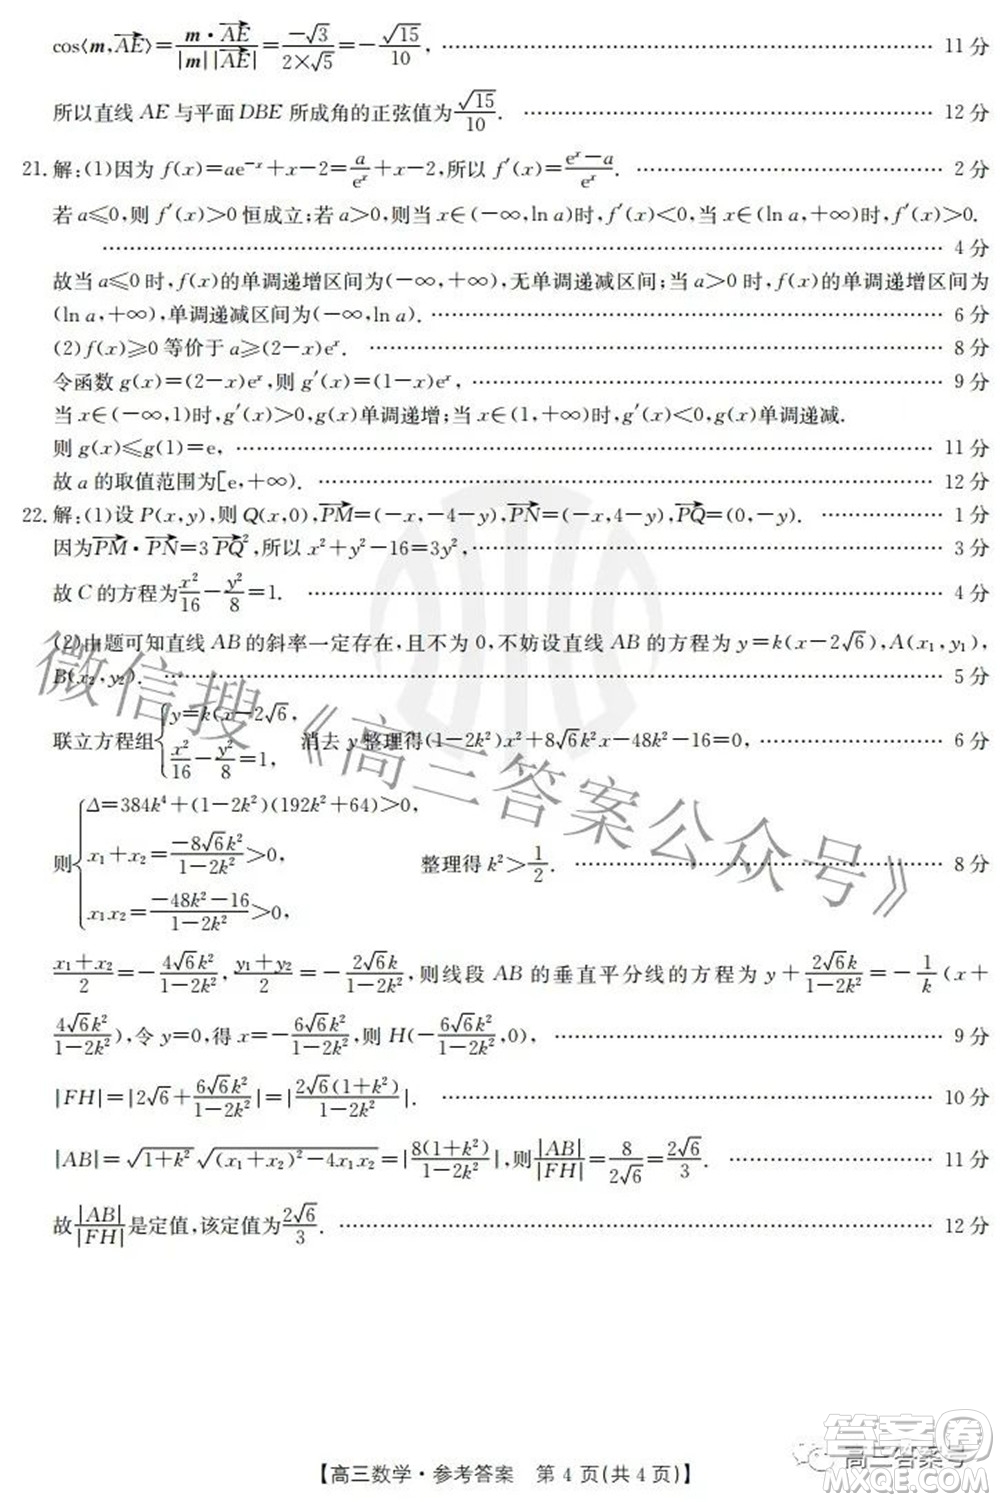 cos⟨m,AE⟩=m·AE/|m||AE|=-√3/2×√5=-√15/10, …… 11分
所以直线AE与平面DBE所成角的正弦值为√15/10. …… 12分
21. 解:(1)因为f(x)=ae⁻ˣ+x-2=a/eˣ+x-2,所以f′(x)=(eˣ-a)/eˣ. …… 2分
若a≤0,则f′(x)>0恒成立;若a>0,则当x∈(-∞,ln a)时,f′(x)<0,当x∈(ln a,+∞)时,f′(x)>0.
…… 4分
故当a≤0时,f(x)的单调递增区间为(-∞,+∞),无单调递减区间;当a>0时,f(x)的单调递增区间为
(ln a,+∞),单调递减区间为(-∞,ln a). …… 6分
(2)f(x)≥0等价于a≥(2-x)eˣ. …… 8分
令函数g(x)=(2-x)eˣ,则g′(x)=(1-x)eˣ, …… 9分
当x∈(-∞,1)时,g′(x)>0,g(x)单调递增;当x∈(1,+∞)时,g′(x)<0,g(x)单调递减.
则g(x)≤g(1)=e, …… 11分
故a的取值范围为[e,+∞). …… 12分
22. 解:(1)设P(x,y),则Q(x,0),PM=(-x,-4-y),PN=(-x,4-y),PQ=(0,-y). …… 1分
因为PM·PN=3PQ²,所以x²+y²-16=3y², …… 3分
故C的方程为x²/16-y²/8=1. …… 4分
(2)由题可知直线AB的斜率一定存在,且不为0,不妨设直线AB的方程为y=k(x-2√6),A(x₁,y₁),
B(x₂,y₂). …… 5分
联立方程组{y=k(x-2√6, x²/16-y²/8=1, 消去y整理得(1-2k²)x²+8√6k²x-48k²-16=0, …… 6分
则{Δ=384k⁴+(1-2k²)(192k²+64)>0,
x₁+x₂=-8√6k²/(1-2k²)>0, 整理得k²>1/2. …… 8分
x₁x₂=(-48k²-16)/(1-2k²)>0,
(x₁+x₂)/2=-4√6k²/(1-2k²),(y₁+y₂)/2=-2√6k/(1-2k²),则线段AB的垂直平分线的方程为y+2√6k/(1-2k²)=-1/k(x+
4√6k²/(1-2k²)),令y=0,得x=-6√6k²/(1-2k²),则H(-6√6k²/(1-2k²),0), …… 9分
|FH|=|2√6+6√6k²/(1-2k²)|=|2√6(1+k²)/(1-2k²)|. …… 10分
|AB|=√(1+k²)√((x₁+x₂)²-4x₁x₂)=|8(1+k²)/(1-2k²)|,则|AB|/|FH|=8/2√6=2√6/3. …… 11分
故|AB|/|FH|是定值,该定值为2√6/3. …… 12分
微信搜《高三答案公众号》
【高三数学·参考答案 第4页(共4页)】
高三答案号
答案卷
MXQE.COM